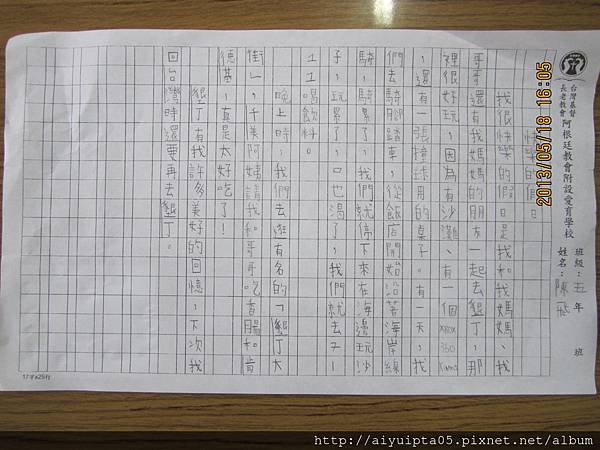 台灣基督
長老教會
阿根廷教會附設愛育學校
班級：五年　班
姓名：陳飛
快樂的假日
我很快樂的假日是我和我媽媽、我
哥哥還有我媽媽的朋友一起去墾丁，那
裡很好玩，因為有沙灘、有一個XBOX 360
，還有一張撞球用的桌子。有一天，我
們去騎腳踏車，從飯店開始沿著海岸線
騎，騎累了，我們就停下來在海邊玩沙
子，玩累了，口也渴了，我們就去7-
11喝飲料。
晚上時，我們去逛有名的「墾丁大
街」，千美阿姨請我和哥哥吃香腸和肯
德基，真是太好吃了！
墾丁有我許多美好的回憶，下次我
回台灣時還要再去墾丁。
17字x25行
2013/05/18 16:05
http://aiyuipta05.pixnet.net/album